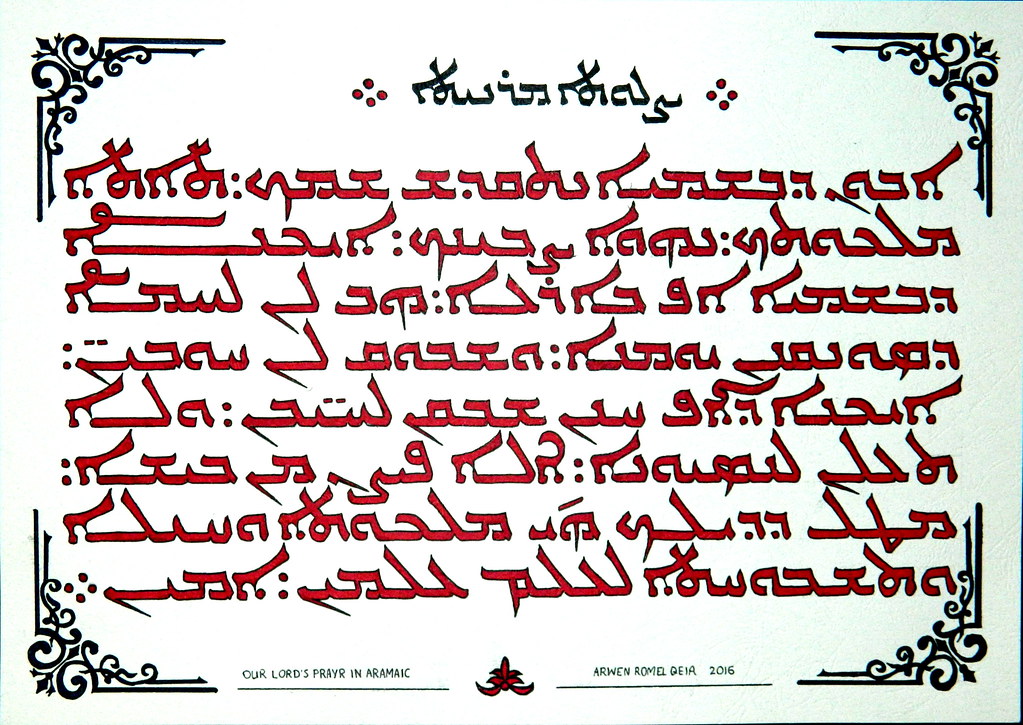 ܨܠܘܬܐ ܡܪܢܝܬܐ
ܐܒܘܢ ܕܒܫܡܝܐ ܢܬܩܕܫ ܫܡܟ: ܬܐܬܐ
ܡܠܟܘܬܟ: ܢܗܘܐ ܨܒܝܢܟ: ܐܝܟܢܐ
ܕܒܫܡܝܐ ܐܦ ܒܐܪܥܐ: ܗܒ ܠܢ ܠܚܡܐ
ܕܣܘܢܩܢܢ ܝܘܡܢܐ: ܘܫܒܘܩ ܠܢ ܚܘܒܝ̈ܢ:
ܐܝܟܢܐ ܕܐܦ ܚܢܢ ܫܒܩܢ ܠܚܝ̈ܒܝܢ: ܘܠܐ
ܬܥܠܢ ܠܢܣܝܘܢܐ: ܐܠܐ ܦܨܢ ܡܢ ܒܝܫܐ:
ܡܛܠ ܕܕܝܠܟ ܗܝ ܡܠܟܘܬܐ ܘܚܝܠܐ
ܘܬܫܒܘܚܬܐ ܠܥܠܡ ܥܠܡܝܢ: ܐܡܝܢ
OUR LORD'S PRAYR IN ARAMAIC
ARWEN ROMEL QEIA 2016